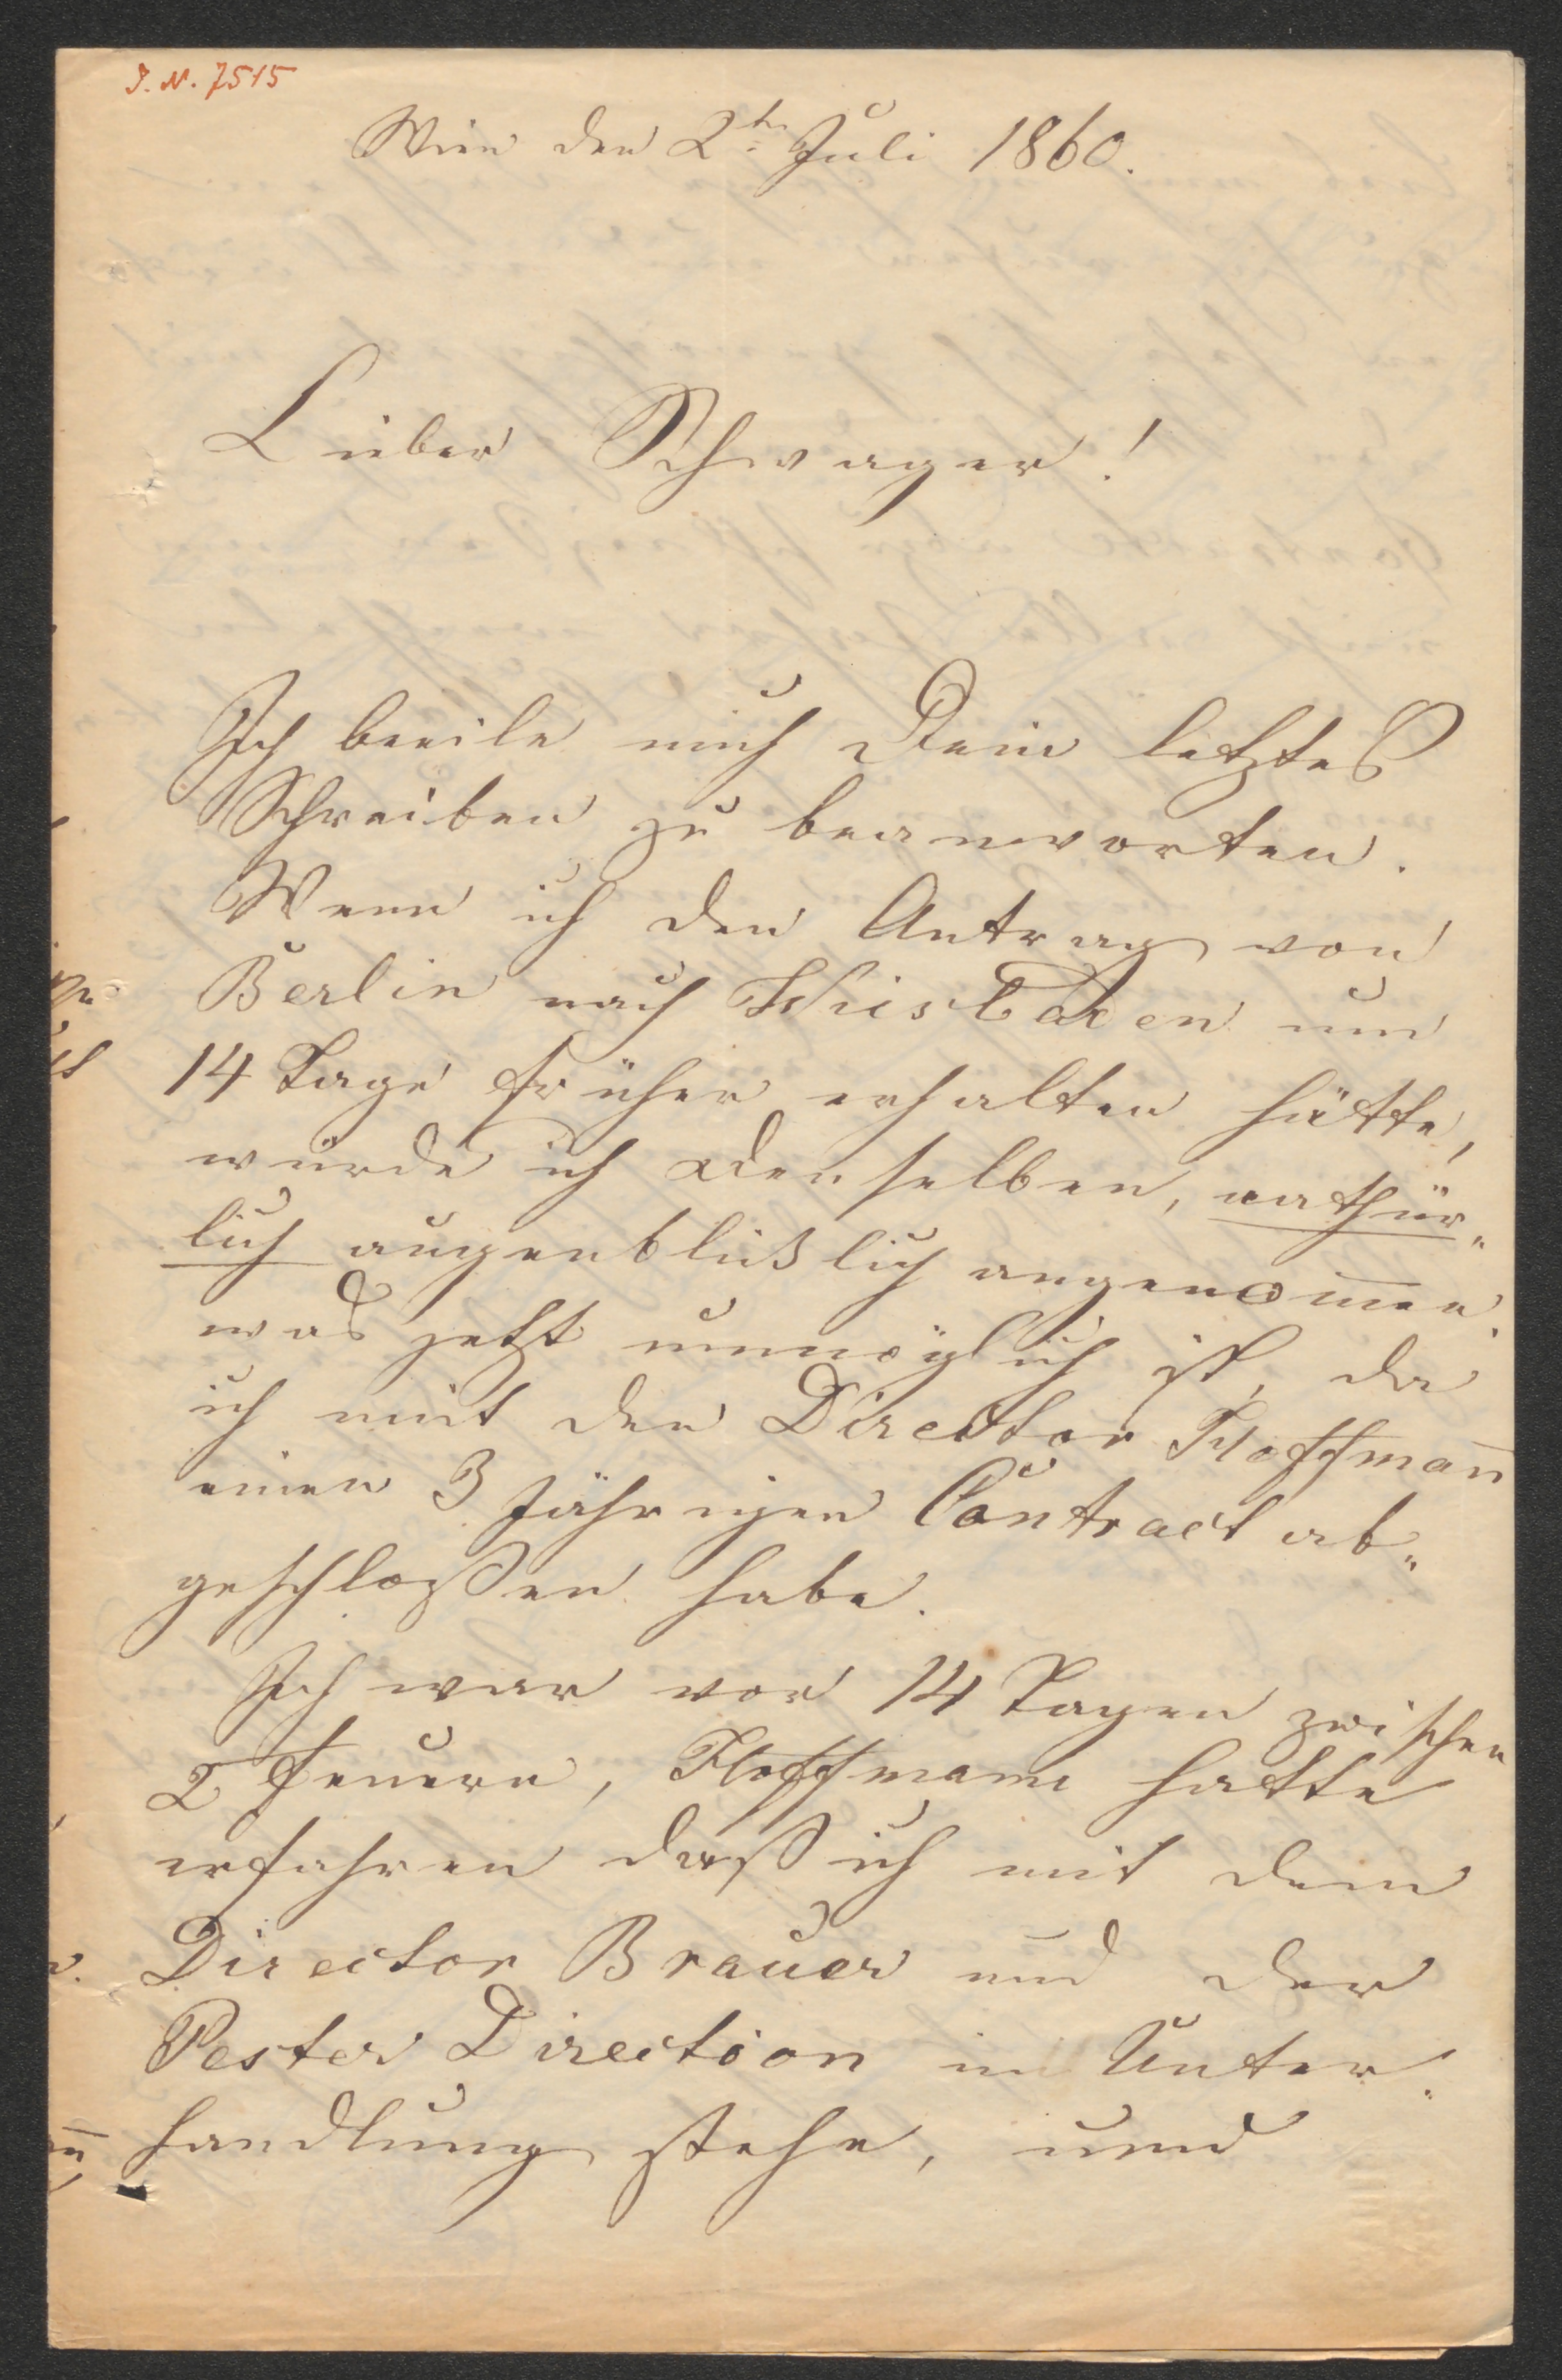 I. N. 7515
Wien den 2ten Juli 1860.
Lieber Schwager!
Ich beeile mich Dein letztes
Schreiben zu beanworten.
Wenn ich den Antrag von
Berlin nach Wiesbaden um
14 Tage früher erhalten hätte,
würde ich denselben, nathür„
lich augenblicklich angenom̄en.
was jetzt unmöglich ist, da
ich mit den Director Hoffman̄
einen 3 Jährigen Contract ab„
geschloßen habe.
Ich war vor 14 Tagen zwischen
2 Feuern, Hoffmann hatte
erfahren daß ich mit dem
Director Brauer und der
Pester Direction in Unter„
handlung stehe, und